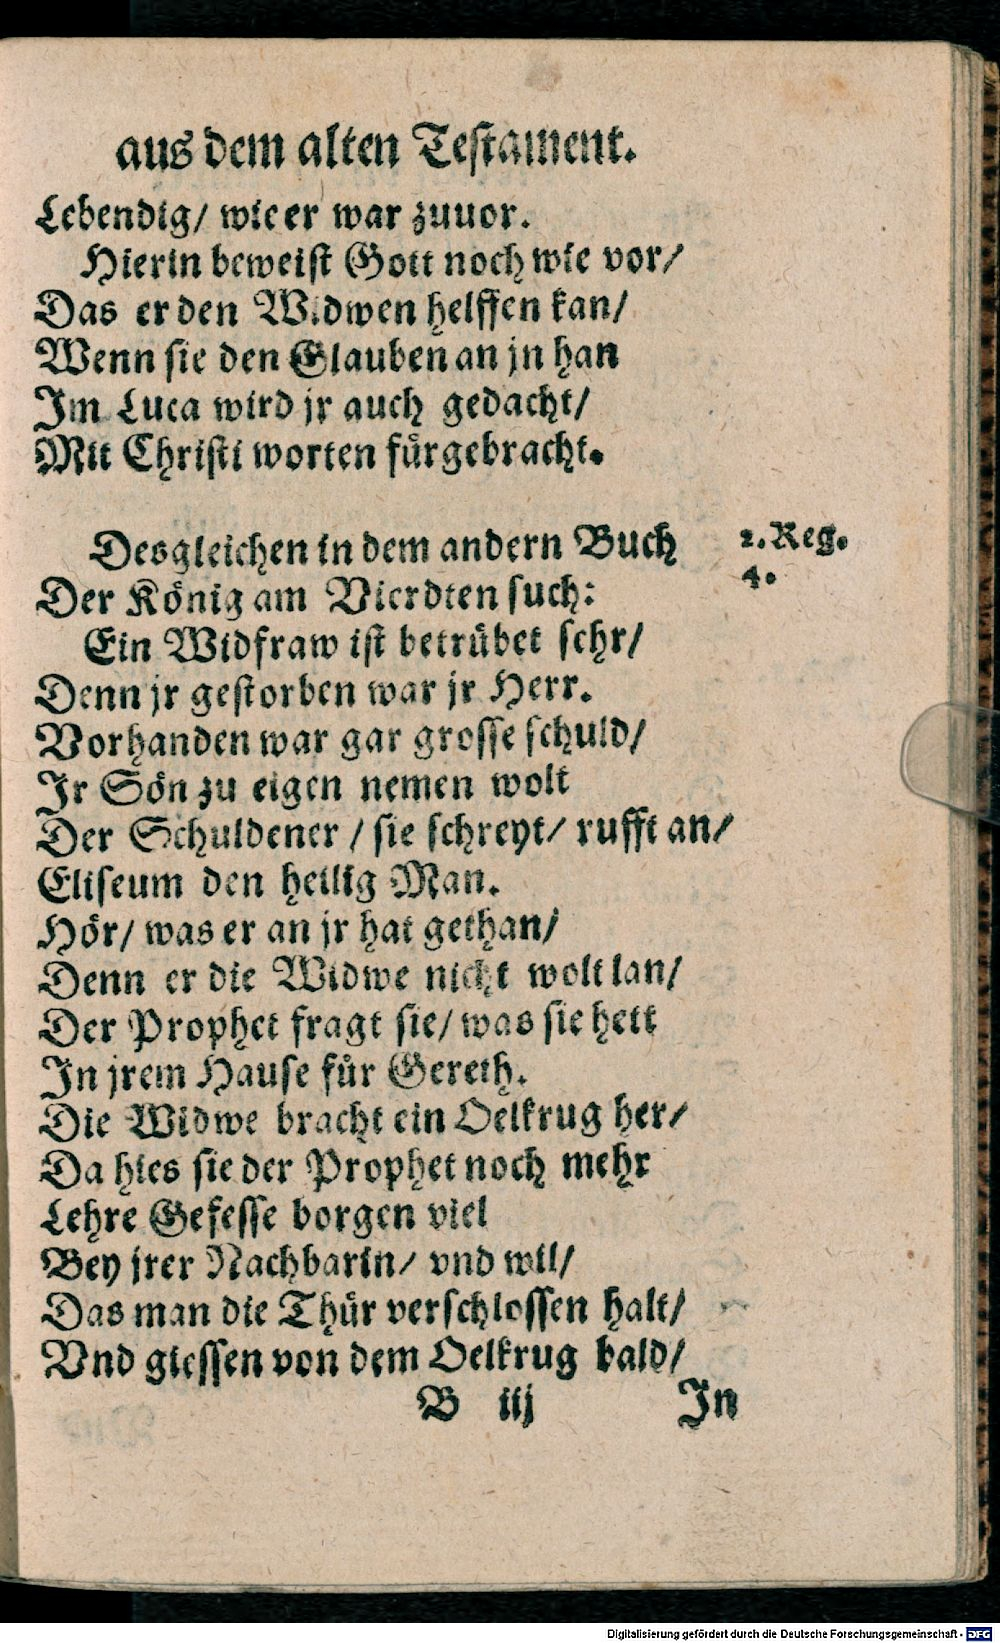 aus dem alten Testament.
Lebendig/ wie er war zuuor.
Hierin beweist Gott noch wie vor/
Das er den Widwen helffen kan/
Wenn sie den Glauben an jn han
Im Luca wird jr auch gedacht/
Mit Christi worten fürgebracht.
Desgleichen in dem andern Buch
2. Reg.
4.
Der König am Vierdten such:
Ein Widfraw ist betrübet sehr/
Denn jr gestorben war jr Herr.
Vorhanden war gar grosse schuld/
Ir Sön zu eigen nemen wolt
Der Schuldener / sie schreyt/ rufft an/
Eliseum den heilig Man.
Hör/ was er an jr hat gethan/
Denn er die Widwe nicht wolt lan/
Der Prophet fragt sie/ was sie hett
In jrem Hause für Gereth.
Die Widwe bracht ein Oelkrug her/
Da hies sie der Prophet noch mehr
Lehre Gefesse borgen viel
Bey jrer Nachbarin/ vnd wil/
Das man die Thür verschlossen halt/
Vnd giessen von dem Oelkrug bald/
B iij
In
Digitalisierung gefördert durch die Deutsche Forschungsgemeinschaft - DFG